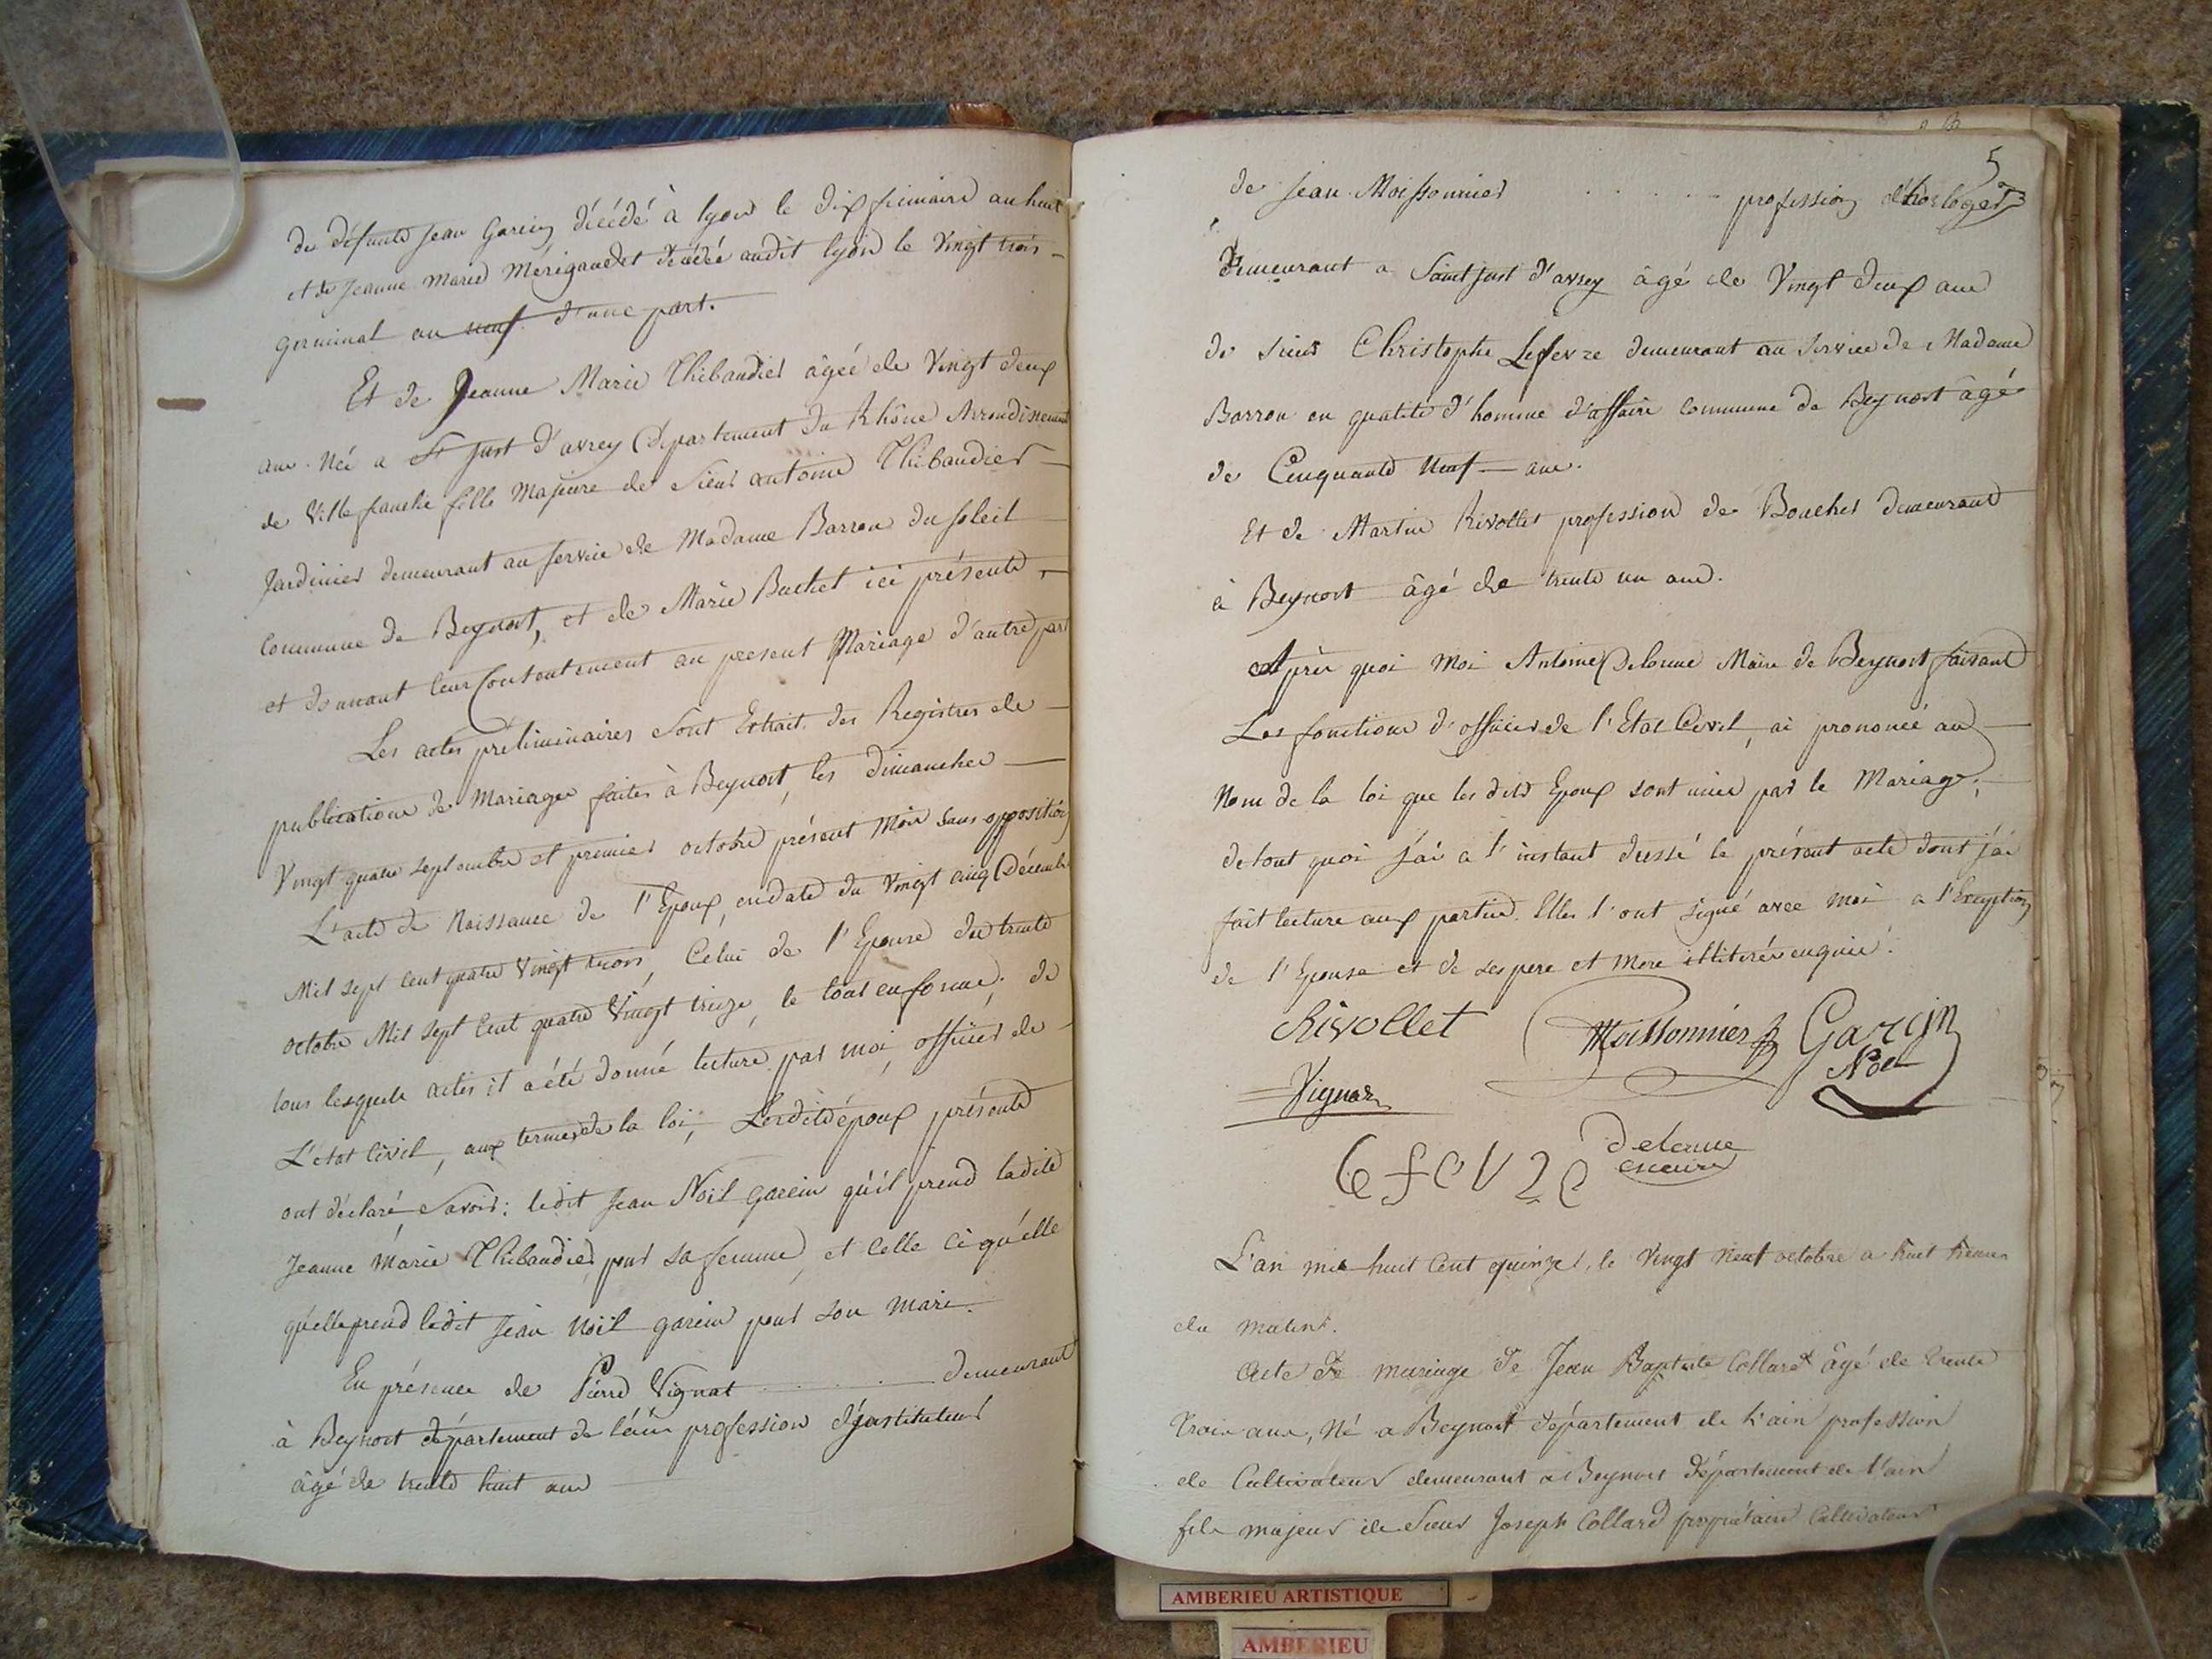 de défunts Jean Garcin décédé à lyon le dix frimaire an huit
et de Jeanne Marie Mérigaudet décédée audit lyon le Vingt trois
germinal an neuf. d'une part.
Et de Jeanne Marie Thibaudier âgée de Vingt deux
ans. Née a St Just d'avrey Département du Rhône Arrondissement
de Villefranche fille Majeure de Sieur antoine Thibaudier
Jardinier demeurant au service de Madame Barron du soleil
Commune de Beynost, et de Marie Buchet ici présents
et donnant leur Contentement au present Mariage d'autre part
Les actes préliminaires sont Extrait des Registres de
publications de Mariages faites à Beynost, les dimanches
Vingt quatre septembre et premier octobre présent Mois sans opposition
L'acte de Naissance de l'Epoux, en date du Vingt cinq Décembre
Mil sept cent quatre Vingt trois, Celui de l'Epouse du trente
octobre Mil sept Cent quatre Vingt treize, le tout en forme; de
tous lesquels actes il a été donné lecture par moi, officier de
L'état Civil, aux termes de la loi, Lesdits époux présents
ont déclaré Savoir: ledit Jean Noël garcin qu'il prend ladite
Jeanne Marie Thibaudier pour sa femme, et Celle ci qu'elle
qu'elle prend ledit Jean Noël garcin pour son mari.
En présence de Pierre Vignat demeurant
à Beynost département de l'ain profession d'justituteur
âgé de trente huit ans
5
de Jean Moissonnier profession d'horloger
Demeurant a Saint Just d'avrey âgé de Vingt deux ans
de sieur Christophe Lefevre demeurant au service de Madame
Barron en qualité d'homme d'affaire Commune de Beynost âgé
de Cinquante Neuf ans.
Et de Martin Rivollet profession de Boucher Demeurant
à Beynost âgé de trente un ans.
Après quoi Moi Antoine Delorme Maire de Beynost faisant
Les fonctions d'officier de l'Etat Civil, ai prononcé au
Nom de la loi que les dits Epoux sont unis par le Mariage;
de tout quoi j'ai a l'instant dressé le présent acte dont j'ai
fait lecture aux parties. Elles l'ont signé avec moi a l'Exception
de l'Epouse et de ses pere et Mere illitérés enquis.
Rivollet Moissonnier Garcin
Vignat Noel
Lefevre
L'an mil huit Cent quinze, le Vingt Neuf octobre a huit heures
du matin.
Acte de mariage de Jean Baptiste Collard âgé de trente
trois ans, Né a Beynost département de l'ain profession
de Cultivateur demeurant a Beynost département de l'ain
fils majeur de Sieur Joseph Collard propriétaire Cultivateur
AMBERIEU ARTISTIQUE
AMBERIEU